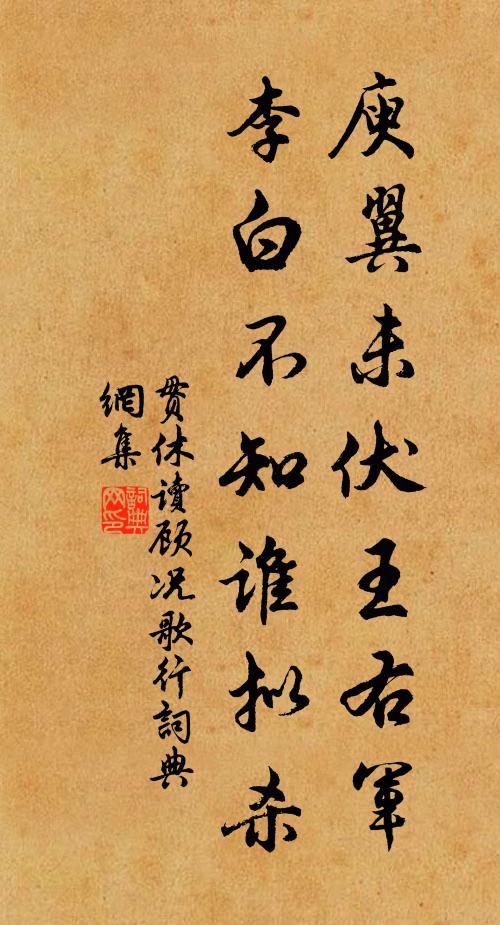 庾翼未伏王右軍
李白不知誰拟杀
贯休讀顾况歌行詞典
網集
詞典网印